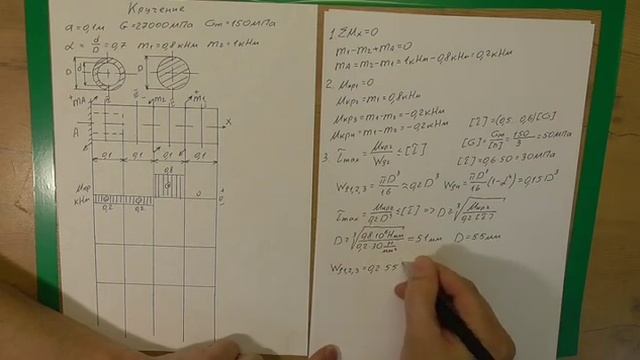 Кручение
a=0,1м G=27000МПа Gт=150МПа
α=d/D=0,7 m1=0,8кНм m2=1кНм
D d D
mA m2 m1
A x
0,1 0,1 0,1 0,1
0,8
Мкр
кНм
0,2 0,2 0
1 ΣMx=0
m1-m2+mA=0
mA=m2-m1=1кНм-0,8кНм=0,2кНм
2. Мкр1=0
Мкр2=m1=0,8кНм
Мкр3=m1-m2=-0,2кНм
Мкр4=m1-m2=-0,2кНм
[τ]=(0,5...0,6)[G]
[G]=Gт/[n]=150/3=50МПа
[τ]=0,6·50=30МПа
3. τmax=Мкр2/Wρ2≤[τ]
Wρ1,2,3=πD³/16≈0,2D³ Wρ4=πD³/16(1-α⁴)=0,15D³
τmax=Мкр2/0,2D³≤[τ] => D≥∛Мкр2/0,2[τ]
D=∛0,8·10⁶Нмм/0,2·30Н/мм²=51мм D=55мм
Wρ1,2,3=0,2·55